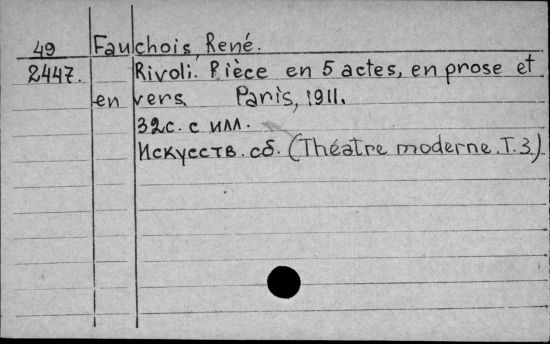 49 Fauchois, René.
2447. Rivoli. Pièce en 5 actes, en prose et
en vers. Paris, 1911.
32с. с илл.
Искусств. сб. (Théatre moderne. T. 3.)